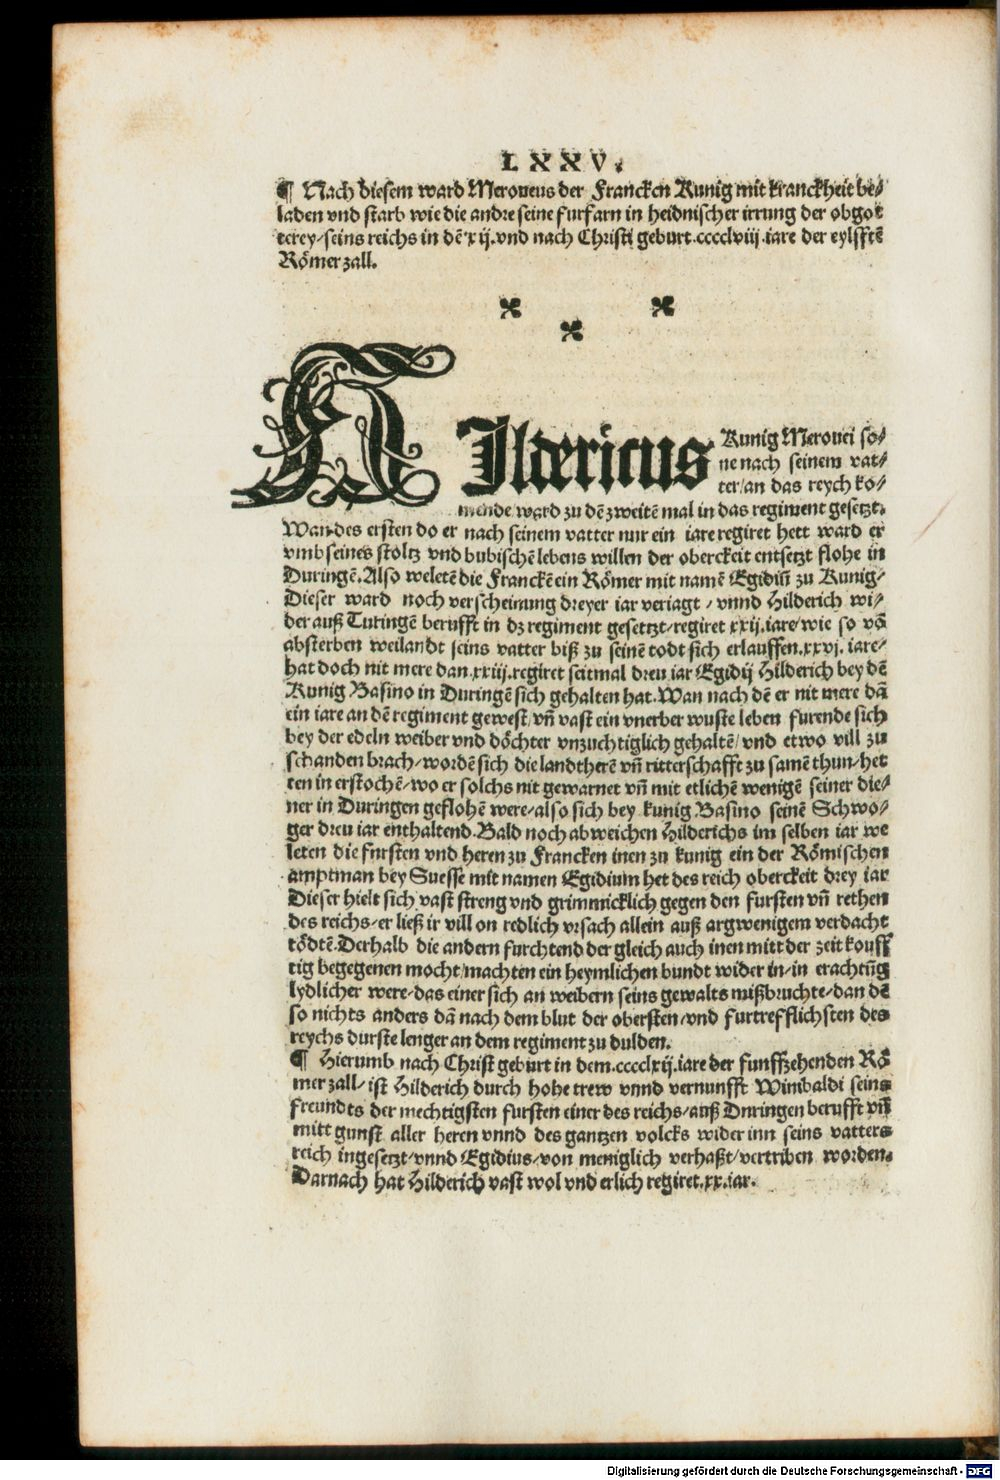 LXXV.
¶ Nach diesem ward Meroueus der Francken Kunig mit kranckheit be⸗
laden vnd starb wie die andre seine furfarn in heidnischer irrung der obgot
terey/seins reichs in dē xij.vnd nach Christi geburt.cccclviij.iare der eylfftē
Römer zall.
HIldericus Kunig Merouei so⸗
ne nach seinem vat⸗
ter/an das reych ko⸗
mende ward zu dē zweitē mal in das regiment gesetzt.
Wan des ersten do er nach seinem vatter nur ein iare regiret hett ward er
vmb seines stoltz vnd bubischē lebens willen der oberckeit entsetzt flohe in
Duringē.Also weletē die Franckē ein Römer mit namē Egidiū zu Kunig/
Dieser ward noch verscheinung dreyer iar veriagt/vnnd Hilderich wi⸗
der auß Turingē berufft in dz regiment gesetzt/regiret xxij.iare/wie so vō
absterben weilandt seins vatter biß zu seinē todt sich erlauffen.xxvj.iare/
hat doch nit mere dan.xxiij.regiret seitmal dreu iar Egidij Hilderich bey dē
Kunig Basino in Duringē sich gehalten hat.Wan nach dē er nit mere dā
ein iare an dē regiment gewest/vn̄ vast ein vnerber wuste leben furende sich
bey der edeln weiber vnd döchter vnzuchtiglich gehaltē/vnd etwo vill zu
schanden brach/wordē sich die landtherē vn̄ ritterschafft zu samē thun/het
ten in erstochē/wo er solchs nit gewarnet vn̄ mit etlichē wenigē seiner die⸗
ner in Duringen geflohē were/also sich bey kunig Basino seinē Schwo⸗
ger dreu iar enthaltend.Bald noch abweichen Hilderichs im selben iar we
leten die fursten vnd heren zu Francken inen zu kunig ein der Römischen
amptman bey Suesse mit namen Egidium het des reich oberckeit drey iar
Dieser hielt sich vast streng vnd grimmicklich gegen den fursten vn̄ rethen
des reichs/er ließ ir vill on redlich vrsach allein auß argwenigem verdacht
tödtē.Derhalb die andern furchtend der gleich auch inen mitt der zeit kouff
tig begegenen mocht/machten ein heymlichen bundt wider in/in erachtūg
lydlicher were/das einer sich an weibern seins gewalts mißbruchte/dan dē
so nichts anders dā nach dem blut der obersten/vnd furtrefflichsten des
reychs durste lenger an dem regiment zu dulden.
¶ Hierumb nach Christ geburt in dem.cccclxij.iare der funffzehenden Rö
mer zall/ist Hilderich durch hohe trew vnnd vernunfft Winibaldi seins
freundts der mechtigsten fursten einer des reichs/auß Duringen berufft vn̄
mitt gunst aller heren vnnd des gantzen volcks wider inn seins vatters
reich ingesetzt/vnnd Egidius/von meniglich verhaßt/vertriben worden.
Darnach hat Hilderich vast wol vnd erlich regiret.xx.iar.
Digitalisierung gefördert durch die Deutsche Forschungsgemeinschaft - DFG